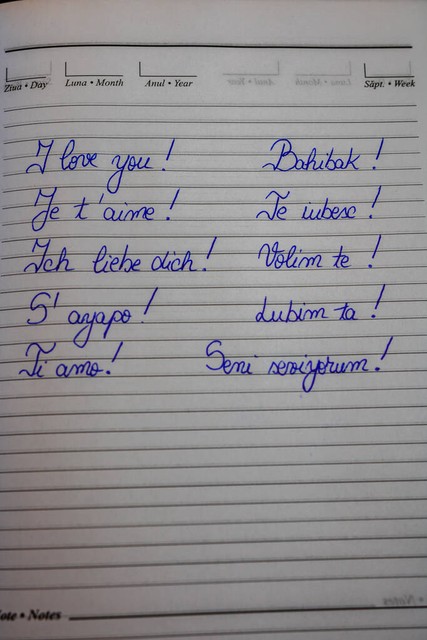 Ziua • Day Luna • Month Anul • Year Săpt. • Week
I love you! Bahibak!
Je t'aime! Te iubesc!
Ich liebe dich! Volim te!
S' ayapo! Lubim ta!
Ti amo! Seni seviyorum!
ote • Notes